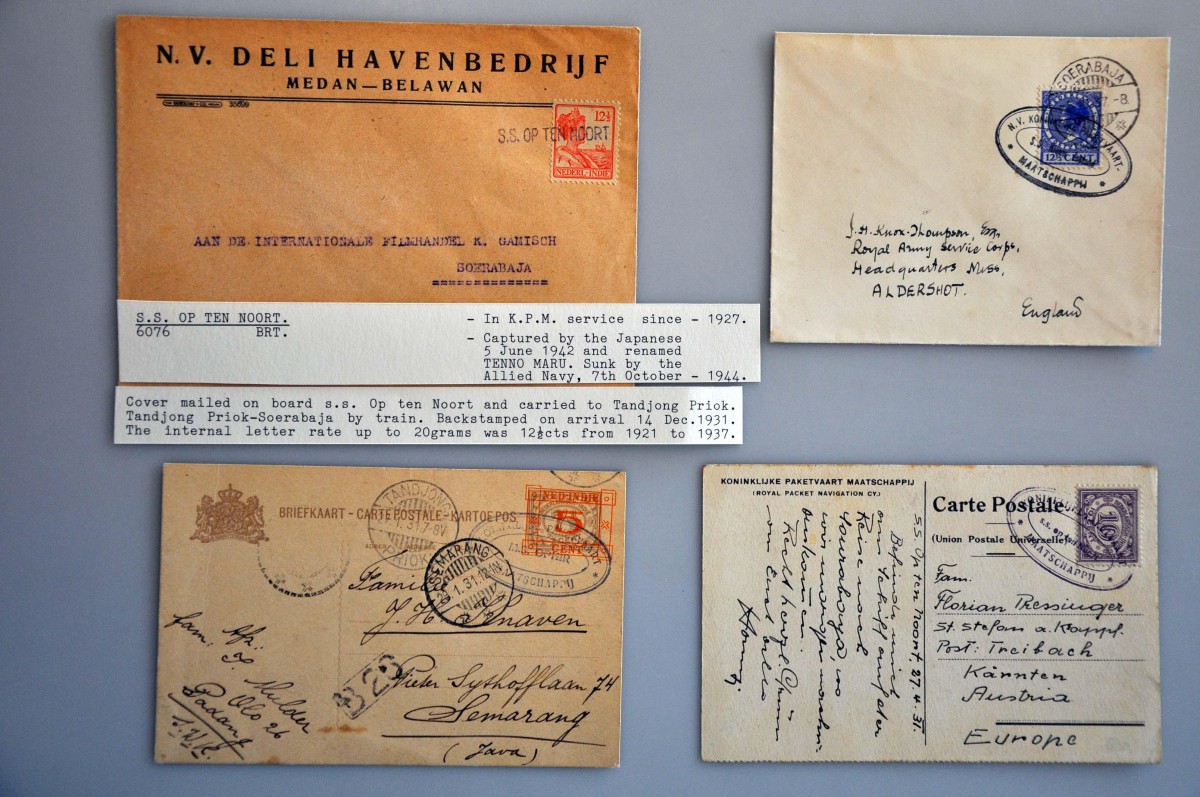 N. V. DELI HAVENBEDRIJF
MEDAN—BELAWAN
12½
S.S. OP TEN NOORT
NEDERL-INDIE
AAN DE INTERNATIONALE FILMHANDEL K. GAMISCH
SOERABAJA
SOERABAJA
-8.
N.V.
S.S.
12½ CENT
MAATSCHAPPIJ
J.H. Knox-Thompson, Esq,
Royal Army Service Corps,
Headquarters Mess,
ALDERSHOT.
England
S.S. OP TEN NOORT. - In K.P.M. service since - 1927.
6076 BRT. - Captured by the Japanese
5 June 1942 and renamed
TENNO MARU. Sunk by the
Allied Navy, 7th October - 1944.
Cover mailed on board s.s. Op ten Noort and carried to Tandjong Priok.
Tandjong Priok-Soerabaja by train. Backstamped on arrival 14 Dec.1931.
The internal letter rate up to 20grams was 12½cts from 1921 to 1937.
BRIEFKAART-CARTE POSTALE-KARTOE POS
TANDJONG
PRIOK
NED-INDIE
5
CENT
SEMARANG
1.31.12-1N
Familie
J. H. Snaven
Pieter Sythofflaan 74
Semarang
(Java)
Afz:
fam. Mulder
Olo 26
Padang
S.W.K.
KONINKLIJKE PAKETVAART MAATSCHAPPIJ
(ROYAL PACKET NAVIGATION CY.)
S.S. Op ten Noort, 27.4.31.
Befinde mich
Reise nach
Sourabaya, wo
wir morgen
ankommen.
Recht herzl. Grüsse
von
Carte Postale
(Union Postale Universelle)
10
MAATSCHAPPIJ
Fam.
Florian Pressinger
St. Stefan a. Krappf.
Post: Treibach
Kärnten
Austria
Europe